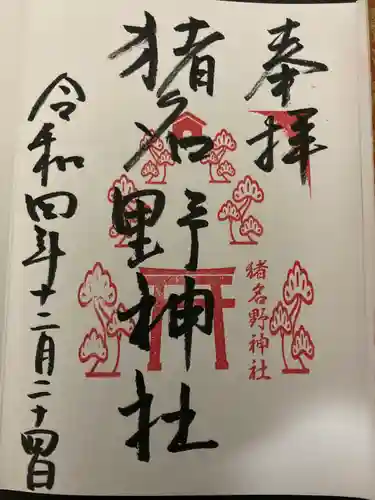 奉拝
猪名野神社
猪名野神社
令和四年十二月二十四日